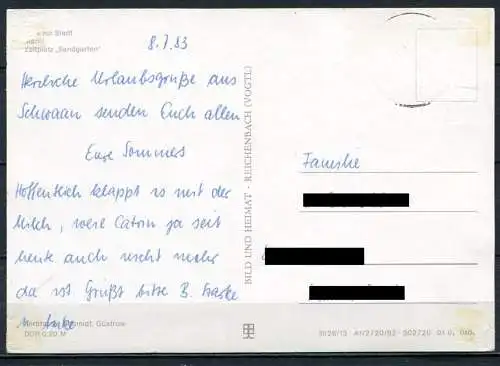 mit Stadt
Zeltplatz „Sandgarten"
8.7.83
Herzliche Urlaubsgrüße aus
Schwaan senden Euch allen
Eure Sommers
Hoffentlich klappt es mit der
Milch, weil Catrin ja seit
heute auch nicht mehr
da ist. Grüßt bitte B.
u. Anke
Familie
BILD UND HEIMAT · REICHENBACH (VOGTL)
Schmidt, Güstrow
DDR 0,20 M
AN 2/20/82 302720 01 6 010